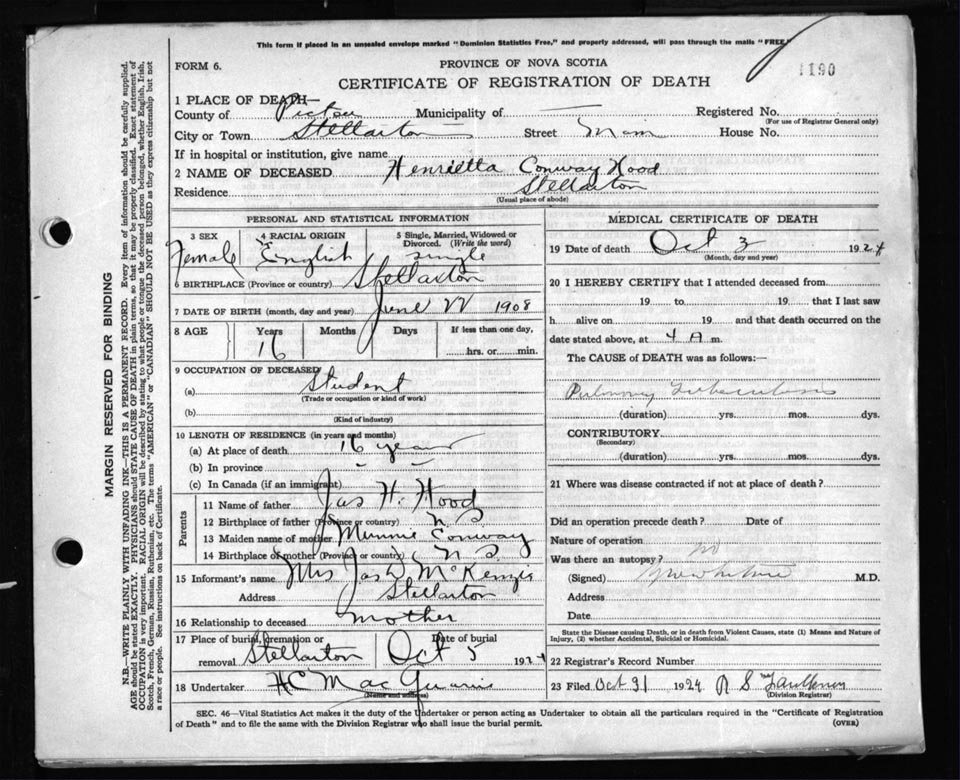 This form if placed in an unsealed envelope marked "Dominion Statistics Free," and properly addressed, will pass through the mails "FREE."
FORM 6.
PROVINCE OF NOVA SCOTIA
1190
CERTIFICATE OF REGISTRATION OF DEATH
1 PLACE OF DEATH—
County of Pictou Municipality of — Registered No.
(For use of Registrar General only)
City or Town Stellarton Street Main House No.
If in hospital or institution, give name
2 NAME OF DECEASED Henrietta Conway Hood
Residence Stellarton
(Usual place of abode)
PERSONAL AND STATISTICAL INFORMATION
3 SEX 4 RACIAL ORIGIN 5 Single, Married, Widowed or Divorced. (Write the word)
Female English Single
6 BIRTHPLACE (Province or country) Stellarton
7 DATE OF BIRTH (month, day and year) June 22 1908
8 AGE Years Months Days If less than one day,
16 hrs. or min.
9 OCCUPATION OF DECEASED
(a) Student
(Trade or occupation or kind of work)
(b)
(Kind of industry)
10 LENGTH OF RESIDENCE (in years and months)
(a) At place of death 16 years
(b) In province — —
(c) In Canada (if an immigrant)
Parents
11 Name of father Jas H. Hood
12 Birthplace of father (Province or country) N S
13 Maiden name of mother Minnie Conway
14 Birthplace of mother (Province or country) N S
15 Informant's name Mrs Jas D McKenzie
Address Stellarton
16 Relationship to deceased Mother
17 Place of burial, cremation or removal Stellarton Date of burial Oct 5 1924
18 Undertaker H C MacQuarrie
(Name and address)
MEDICAL CERTIFICATE OF DEATH
19 Date of death Oct 3 1924
(Month, day and year)
20 I HEREBY CERTIFY that I attended deceased from
19 to 19 that I last saw
h alive on 19 and that death occurred on the
date stated above, at 4 A m.
The CAUSE of DEATH was as follows:—
Pulmonary Tuberculosis
(duration) yrs. mos. dys.
CONTRIBUTORY
(Secondary)
(duration) yrs. mos. dys.
21 Where was disease contracted if not at place of death?
Did an operation precede death? Date of
Nature of operation
Was there an autopsy? no
(Signed) M.D.
Address
Date
State the Disease causing Death, or in death from Violent Causes, state (1) Means and Nature of Injury, (2) whether Accidental, Suicidal or Homicidal.
22 Registrar's Record Number
23 Filed Oct 31 1924 R S Faulkner
(Division Registrar)
SEC. 46—Vital Statistics Act makes it the duty of the Undertaker or person acting as Undertaker to obtain all the particulars required in the "Certificate of Registration
of Death" and to file the same with the Division Registrar who shall issue the burial permit. (OVER)
MARGIN RESERVED FOR BINDING
N.B.—WRITE PLAINLY WITH UNFADING INK—THIS IS A PERMANENT RECORD. Every item of information should be carefully supplied.
AGE should be stated EXACTLY. PHYSICIANS should STATE CAUSE OF DEATH in plain terms, so that it may be properly classified. Exact statement of
OCCUPATION is very important. RACIAL ORIGIN will be described by stating to what people or tongue the deceased person belonged, whether English, Irish,
Scotch, French, German, Russian, Ruthenian, etc. The terms "AMERICAN" or "CANADIAN" SHOULD NOT BE USED as they express citizenship but not
a race or people. See instructions on back of Certificate.